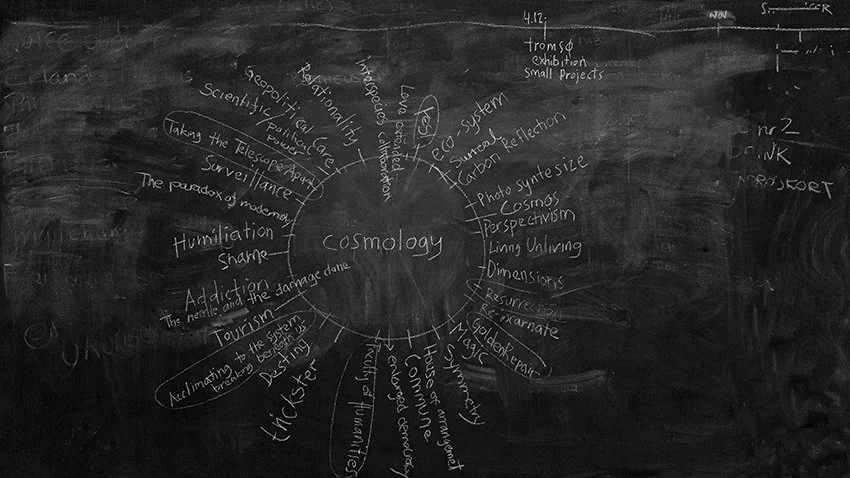 NOV
4.12:
tromsø
exhibition
small projects
nr 2
Cosmology
Yes!
eco-system
Surreal
Carbon Reflection
Photo syntesize
Cosmos
Perspectivism
Living Unliving
Dimensions
Resurrection
Reincarnate
Golden Repair
Magic
Symmetry
House of arrangemet
Commune
enlarged democracy
Faculty of Humanities
trickster
Destiny
Acclimating to the system
breaking beneath us
Tourism
The needle and the damage done
Addiction
Shame
Humiliation
The paradox of modernity
Surveillance
Taking the Telescope Apart
Scientific/political
power
Geopolitical Care
Relationality
interspecies collaboration
Love extended